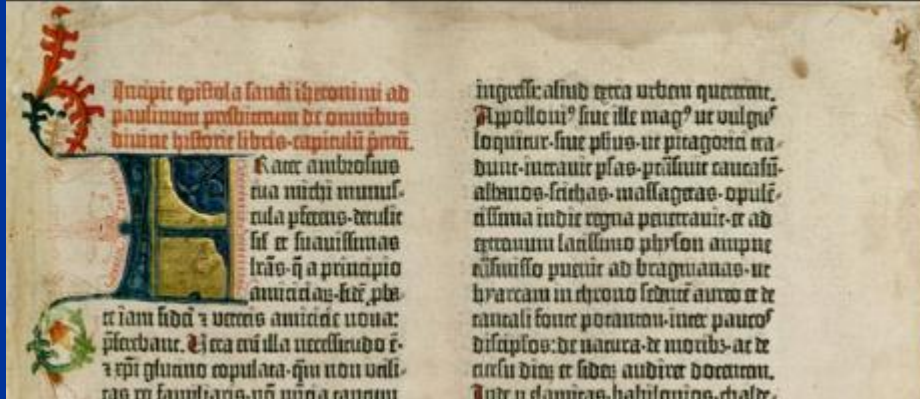 Incipit epistola sancti iheronimi ad
paulinum presbiterum de omnibus
divine historie libris. capitulū pⁱmū.
Rater ambrosius
tua michi munus-
cula pferens. detulit
sil et suavissimas
lrās. q̄ a principio
amiciciaꝝ. fidē pba-
te iam fidei ⁊ veteris amicicie nova:
pferebant. Vera eni illa necessitudo ē.
⁊ xpi glutino copulata. qm̄ non utili-
tas rei familiaris. nō p̄ntia tantum
ingressi: aliud extra urbem quererent.
Appolloni⁹ sive ille mag⁹ ut vulgus
loquitur. sive phus. ut pitagorici tra-
dunt. intravit psas. ptrāsivit caucasū.
albanos. scithas. massagetas. opulē-
tissima indie regna penetravit. et ad
extremum latissimo physon ampne
trāsmisso puenit ad bragmanas. ut
hyarcam in throno sedentē aureo et de
tantali fonte potantem. inter paucos
discipłos: de natura. de moribꝫ. ac de
cursu dieꝝ et sideꝝ audiret docentem.
Inde p elamitas. babilonios. chalde-